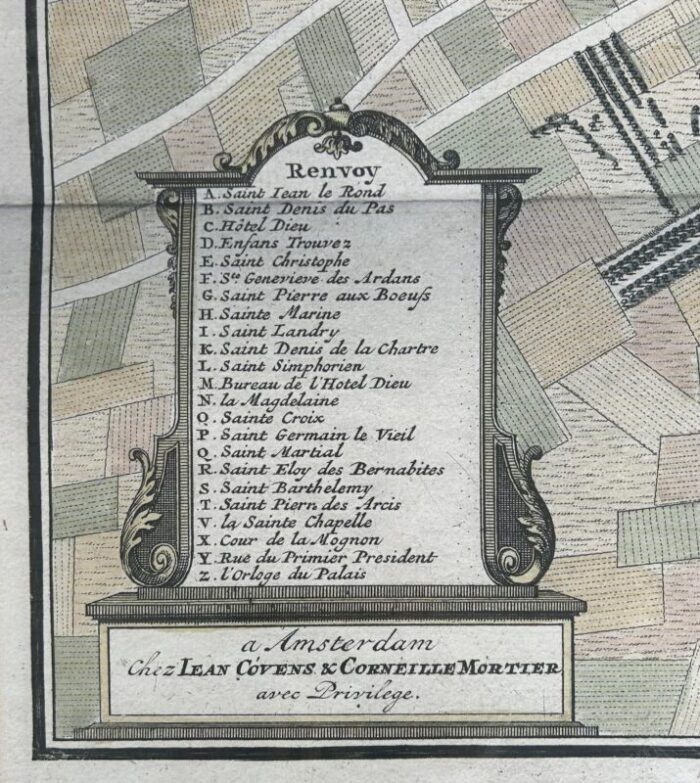 Renvoy
A. Saint Iean le Rond
B. Saint Denis du Pas
C. Hôtel Dieu
D. Enfans Trouvez
E. Saint Christophe
F. Ste Genevieve des Ardans
G. Saint Pierre aux Boeufs
H. Sainte Marine
I. Saint Landry
K. Saint Denis de la Chartre
L. Saint Simphorien
M. Bureau de l'Hotel Dieu
N. la Magdelaine
Q. Sainte Croix
P. Saint Germain le Vieil
Q. Saint Martial
R. Saint Eloy des Bernabites
S. Saint Barthelemy
T. Saint Piern des Arcis
V. la Sainte Chapelle
X. Cour de la Mognon
Y. Rue du Primier President
Z. l'Orloge du Palais
a Amsterdam
Chez IEAN COVENS & CORNEILLE MORTIER
avec Privilege.